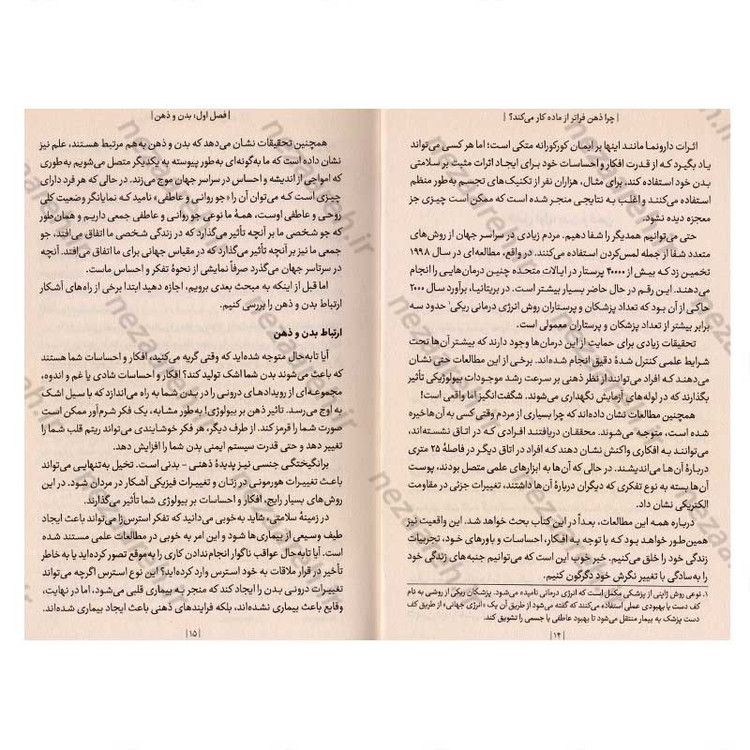 | چرا ذهن فراتر از ماده کار می‌کند؟ |
اثرات دارونما مانند اینها بر ایمان کورکورانه متکی است؛ اما هر کسی می‌تواند
یاد بگیرد که از قدرت افکار و احساسات خود برای ایجاد اثرات مثبت بر سلامتی
بدن خود استفاده کند، برای مثال، هزاران نفر از تکنیک‌های تجسم به‌طور منظم
استفاده می‌کنند و اغلب به نتایجی منجر شده است که ممکن است چیزی جز
معجزه دیده نشود.
حتی می‌توانیم همدیگر را شفا دهیم. مردم زیادی در سراسر جهان از روش‌های
متعدد شفا از جمله لمس‌کردن استفاده می‌کنند. در واقع، مطالعه‌ای در سال ۱۹۹۸
تخمین زد که بیش از ۳۰۰۰۰ پرستار در ایالات متحده چنین درمان‌هایی را انجام
می‌دهند. این رقم در حال حاضر بسیار بیشتر است. در بریتانیا، برآورد سال ۲۰۰۰
حاکی از آن بود که تعداد پزشکان و پرستاران روش انرژی درمانی ریکی۱ حدود سه
برابر بیشتر از تعداد پزشکان و پرستاران معمولی است.
تحقیقات زیادی برای حمایت از این درمان‌ها وجود دارند که بیشتر آن‌ها تحت
شرایط علمی کنترل شدهٔ دقیق انجام شده‌اند. برخی از این مطالعات حتی نشان
می‌دهند که افراد می‌توانند از نظر ذهنی بر سرعت رشد موجودات بیولوژیکی تأثیر
بگذارند که در لوله‌های آزمایش نگهداری می‌شوند. شگفت‌انگیز اما واقعی است!
همچنین مطالعات نشان داده‌اند که چرا بسیاری از مردم وقتی کسی به آن‌ها خیره
شده است، متوجه می‌شوند. محققان دریافتند افرادی که در اتاق نشسته‌اند،
می‌توانند به افکاری واکنش نشان دهند که افراد در اتاق دیگر در فاصلهٔ ۲۵ متری
دربارهٔ آن‌ها می‌اندیشند. در حالی که آن‌ها به ابزارهای علمی متصل بودند، پوست
آن‌ها بسته به نوع تفکری که دیگران دربارهٔ آن‌ها داشتند، تغییرات جزئی در مقاومت
الکتریکی نشان داد.
درباره همه این مطالعات، بعداً در این کتاب بحث خواهد شد. این واقعیت نیز
همین‌طور خواهد بود که با توجه به افکار، احساسات و باورهای خود، تجربیات
زندگی خود را خلق می‌کنیم. خبر خوب این است که می‌توانیم جنبه‌های زندگی خود
را به‌سادگی با تغییر نگرش خود دگرگون کنیم.
۱. نوعی روش ژاپنی از پزشکی مکمل است که انرژی درمانی نامیده می‌شود. پزشکان ریکی از روشی به نام
کف دست یا بهبودی عملی استفاده می‌کنند که گفته می‌شود از طریق آن یک «انرژی جهانی» از طریق کف
دست پزشک به بیمار منتقل می‌شود تا بهبود عاطفی یا جسمی را تشویق کند.
| ۱۴ |
| فصل اول: بدن و ذهن |
همچنین تحقیقات نشان می‌دهد که بدن و ذهن به‌هم مرتبط هستند، علم نیز
نشان داده است که ما به‌گونه‌ای به‌طور پیوسته به یکدیگر متصل می‌شویم به‌طوری
که امواجی از اندیشه و احساس در سراسر جهان موج می‌زند. در حالی که هر فرد دارای
چیزی است که می‌توان آن را «جو روانی و عاطفی» نامید که نمایانگر وضعیت کلی
روحی و عاطفی اوست، همهٔ ما نوعی جو روانی و عاطفی جمعی داریم و همان‌طور
که جو شخصی ما بر آنچه تأثیر می‌گذارد که در زندگی شخصی ما اتفاق می‌افتد، جو
جمعی ما نیز بر آنچه تأثیر می‌گذارد که در مقیاس جهانی برای ما اتفاق می‌افتد. آنچه
در سرتاسر جهان می‌گذرد صرفاً نمایشی از نحوهٔ تفکر و احساس ماست.
اما قبل از اینکه به مبحث بعدی برویم، اجازه دهید ابتدا برخی از راه‌های آشکار
ارتباط بدن و ذهن را بررسی کنیم.
ارتباط بدن و ذهن
آیا تابه‌حال متوجه شده‌اید که وقتی گریه می‌کنید، افکار و احساسات شما هستند
که باعث می‌شوند بدن شما اشک تولید کند؟ افکار و احساسات شادی یا غم و اندوه،
مجموعه‌ای از رویدادهای درونی را در بدن شما به راه می‌اندازد که با سیل اشک
به اوج می‌رسد. تاثیر ذهن بر بیولوژی! به‌طور مشابه، یک فکر شرم‌آور ممکن است
صورت شما را قرمز کند. از طرف دیگر، هر فکر خوشایندی می‌تواند ریتم قلب شما را
تغییر دهد و حتی قدرت سیستم ایمنی بدن شما را افزایش دهد.
برانگیختگی جنسی نیز پدیدهٔ ذهنی - بدنی است. تخیل به‌تنهایی می‌تواند
باعث تغییرات هورمونی در زنان و تغییرات فیزیکی آشکار در مردان شود. در این
روش‌های بسیار رایج، افکار و احساسات بر بیولوژی شما تأثیر می‌گذارند.
در زمینهٔ سلامتی، شاید به‌خوبی می‌دانید که تفکر استرس‌زا می‌تواند باعث ایجاد
طیف وسیعی از بیماری‌ها شود و این امر به خوبی در مطالعات علمی مستند شده
است. آیا تابه‌حال عواقب ناگوار انجام‌ندادن کاری را به‌موقع تصور کرده‌اید یا به خاطر
تأخیر در قرار ملاقات به خود استرس وارد کرده‌اید؟ این نوع استرس اگرچه می‌تواند
تغییرات درونی بدن را ایجاد کند که منجر به بیماری قلبی می‌شود، اما در نهایت،
وقایع باعث بیماری نشده‌اند، بلکه فرایندهای ذهنی باعث ایجاد بیماری شده‌اند.
| ۱۵ |
nezareh.ir